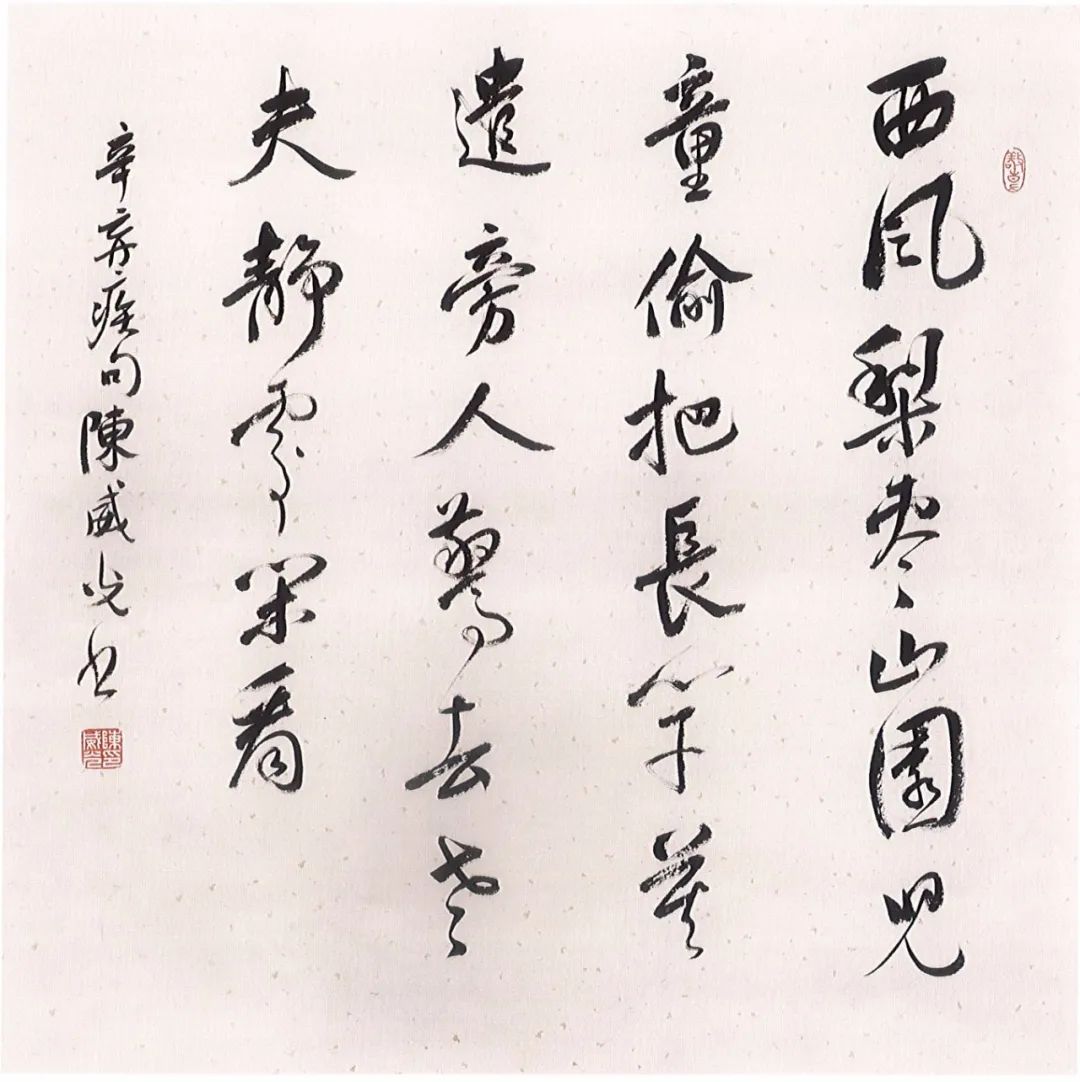 西風梨棗山園兒
童偷把長竿莫
遣旁人驚去老
夫靜處閑看
辛弃疾句陳威光書